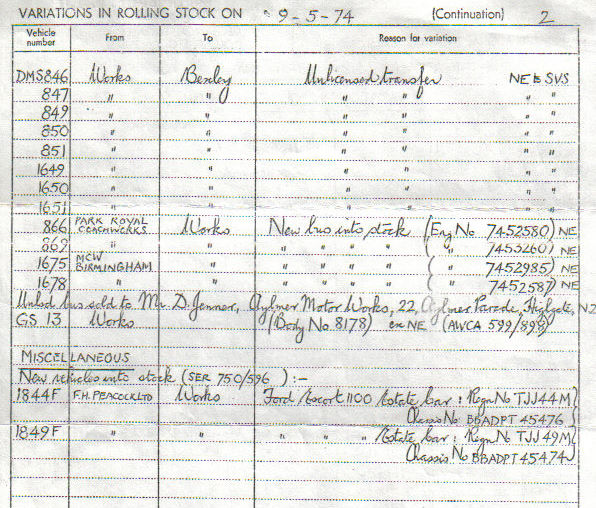 VARIATIONS IN ROLLING STOCK ON 9-5-74 (Continuation) 2
Vehicle number From To Reason for variation
DMS846 Works Bexley Unlicensed transfer NE to SVS
847 " " " " " "
849 " " " " " "
850 " " " " " "
851 " " " " " "
1649 " " " " " "
1650 " " " " " "
1651 " " " " " "
866 PARK ROYAL COACHWORKS Works New bus into stock (Eng No 7452580) NE
862 " " " " " " ( " 7453260) NE
1675 MCW BIRMINGHAM " " " " " ( " 7452985) NE
1678 " " " " " " ( " 7452587) NE
Unlsd bus sold to Mr. D. Jenner, Aylmer Motor Works, 22, Aylmer Parade, Highgate, N2
GS 13 Works (Body No 8178) ex NE (AWCA 599/898)
MISCELLANEOUS
New vehicles into stock (SER 750/596 ) :-
1844F F.H. PEACOCK LTD Works Ford Escort 1100 Estate Car : Regn No TJJ 44M
Chassis No BBADPT 45476
1849F " " " " " Estate Car : Regn No TJJ 49M
Chassis No BBADPT 45474